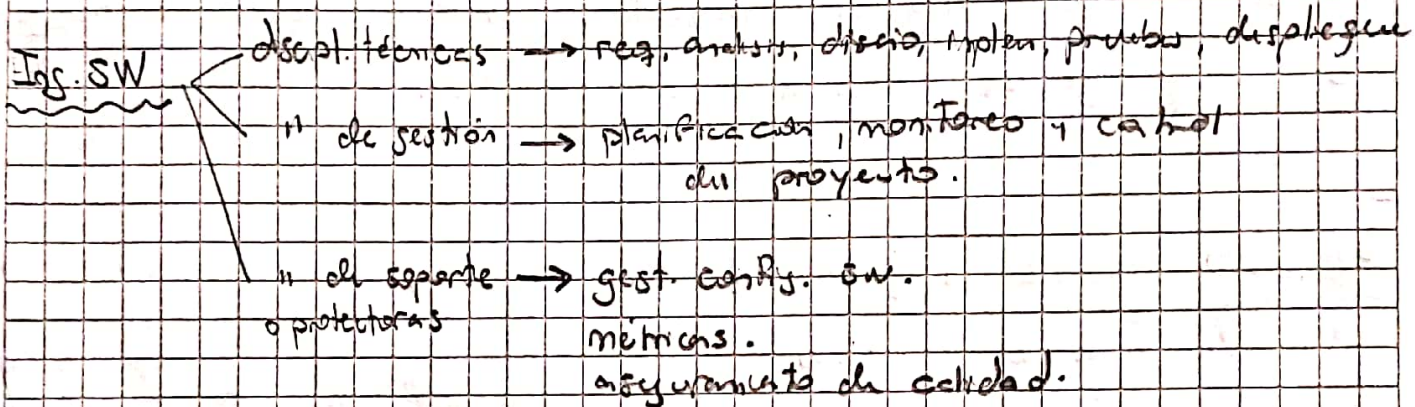 discipl. técnicas → req, analisis, diseño, implem, pruebas, despliegue
Ing. SW
" de gestión → planificación, monitoreo y control
del proyecto.
" de soporte → gest. config. sw.
o protectoras
métricas.
aseguramiento de calidad.